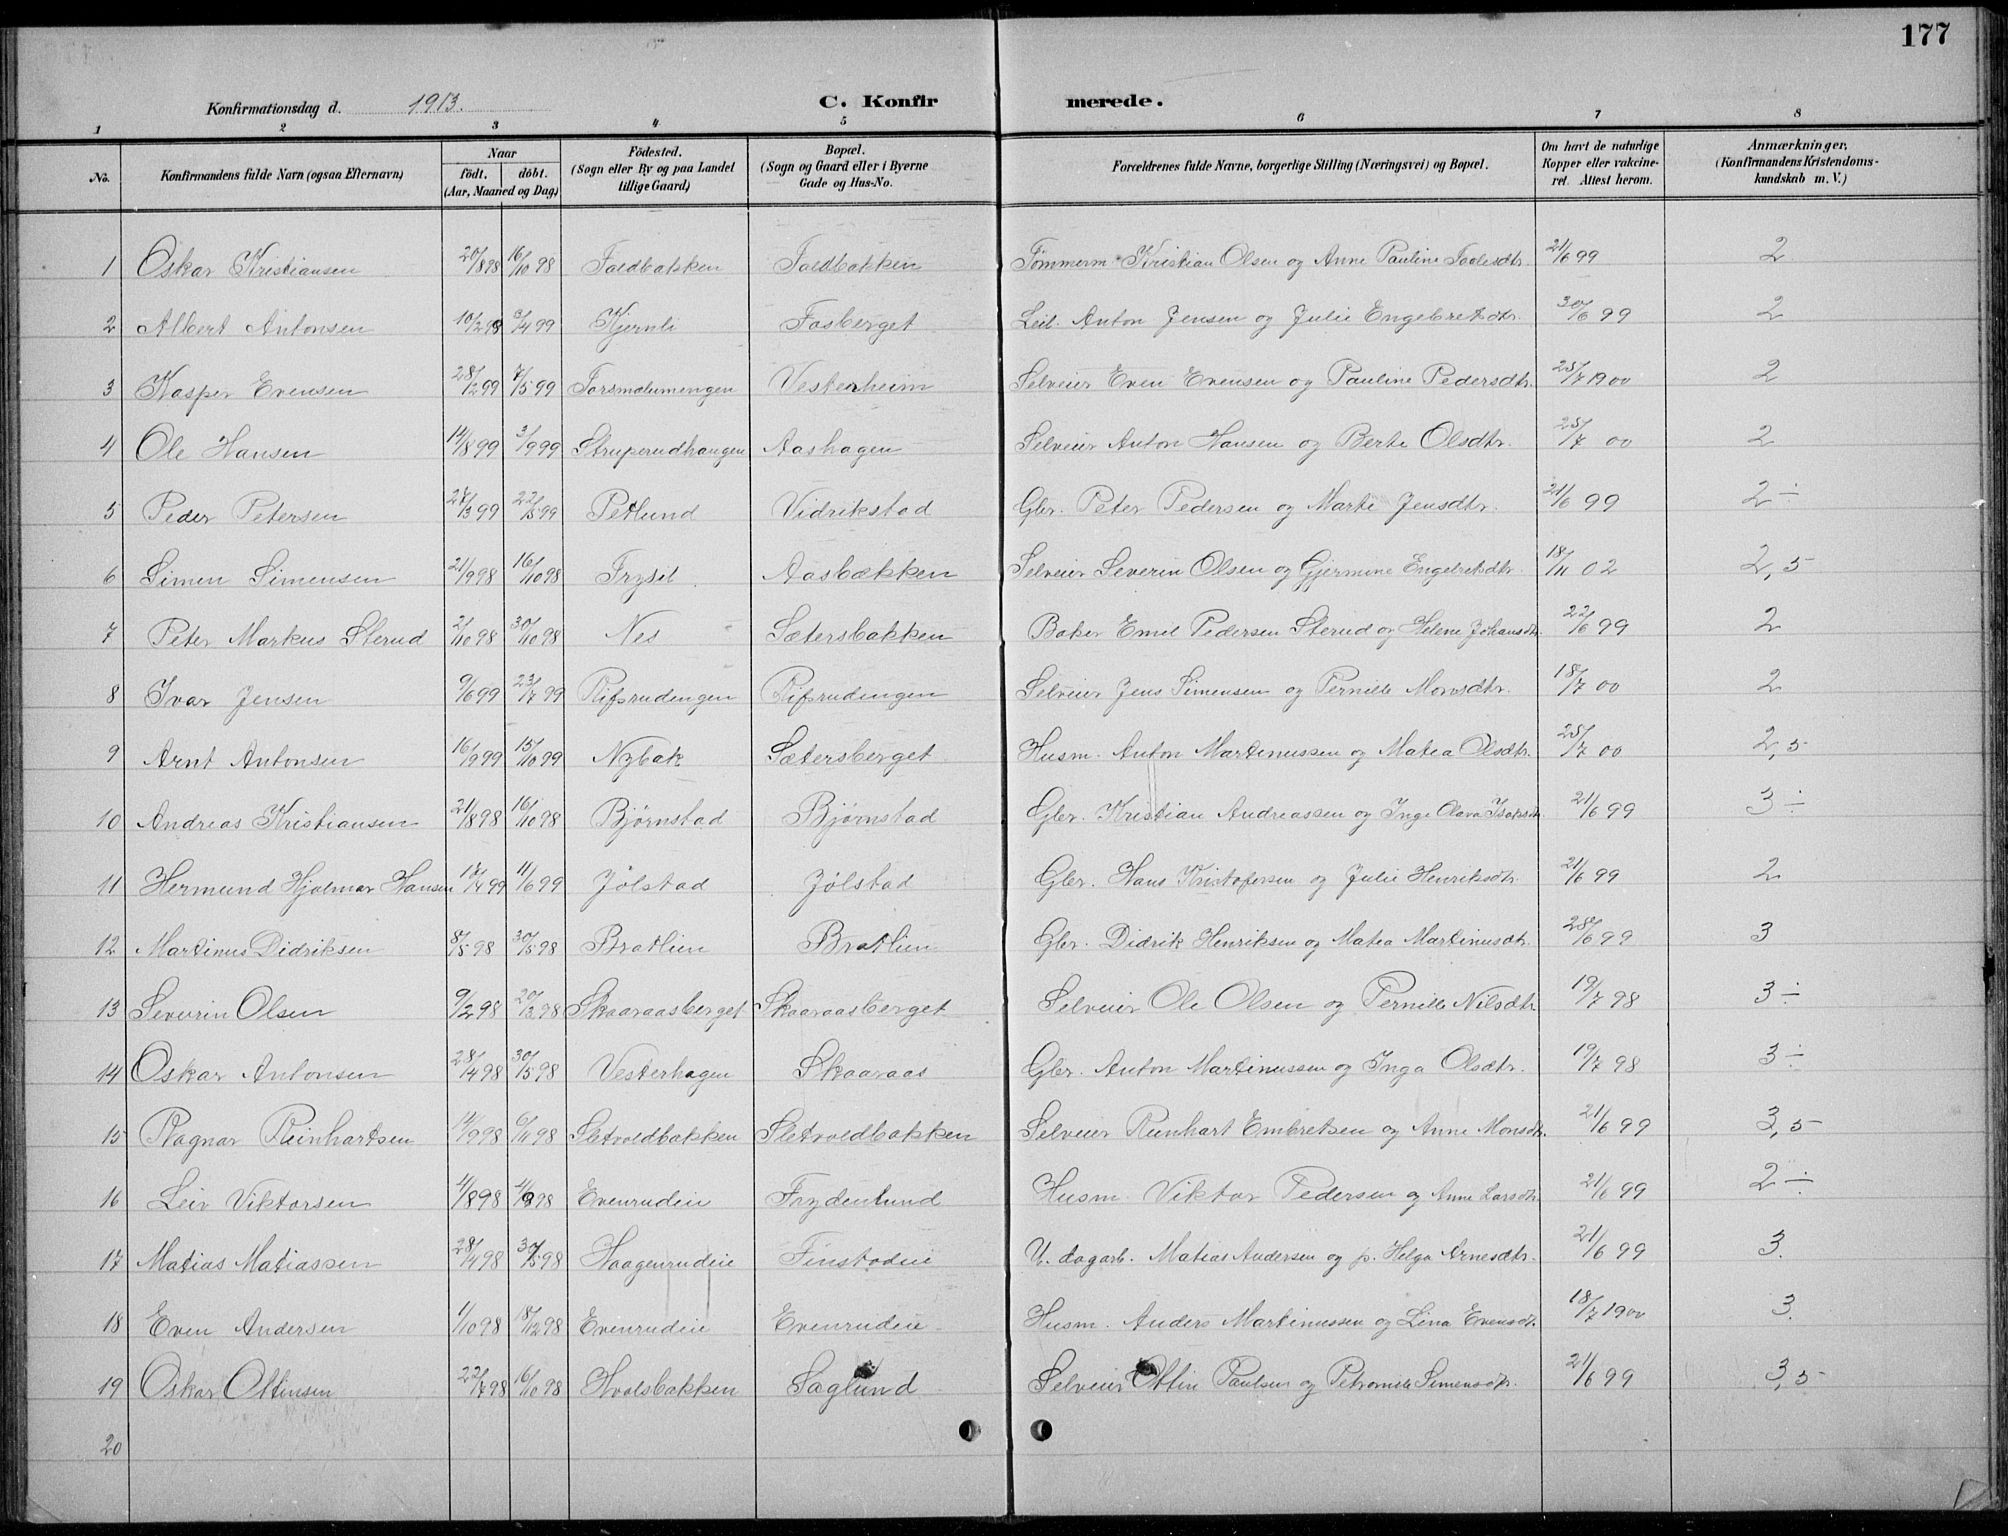 177
Konfirmationsdag d. 1913. C. Konfirmerede.
1 2 3 4 5 6 7 8
No. Konfirmandens fulde Navn (ogsaa Efternavn) Naar födt. döbt. (Aar, Maaned og Dag) Födested. (Sogn eller By og paa Landet tillige Gaard) Bopæl. (Sogn og Gaard eller i Byerne Gade og Hus-No. Forældrenes fulde Navne, borgerlige Stilling (Næringsvei) og Bopæl. Om havt de naturlige Kopper eller vakcineret. Attest herom. Anmærkninger, (Konfirmandens Kristendomskundskab m. V.)
1 Oskar Kristiansen 20/8 98 16/10 98 Foldbakken Foldbakken Tömmerm. Kristian Olsen og Anne Pauline 21/6 99 2
2 Albert Antonsen 10/2 99 3/4 99 Kjernli Fosberget Leil. Anton Jensen og Julie Engebretsdtr. 30/6 99 2
3 Kasper Evensen 28/2 99 7/5 99 Vesterheim Selveier Even Evensen og Pauline Pedersdtr. 25/7 1900 2
4 Ole Hansen 14/8 99 3/9 99 Struperudhaugen Aashagen Selveier Anton Hansen og Berte Olsdtr. 25/7 00 2
5 Peder Petersen 27/3 99 22/5 99 Petlund Vidrikstad Gbr. Peter Pedersen og Marte Jensdtr. 21/6 99 2÷
6 Simen Simensen 21/9 98 16/10 98 Trysil Aasbækken Selveier Severin Olsen og Gjermine Engebretsdtr. 18/11 02 2,5
7 Peter Markus Sterud 2/10 98 30/10 98 Nes Sætersbakken Baker Emil Pedersen Sterud og Helene Johansdtr. 22/6 99 2
8 Ivar Jensen 9/6 99 23/7 99 Rifsrudengen Rifsrudengen Selveier Jens Simensen og Pernille Monsdtr. 18/7 00 2
9 Arnt Antonsen 16/9 99 15/10 99 Nybak Sætersberget Husm. Anton Martinussen og Matea Olsdtr. 25/7 00 2,5
10 Andreas Kristiansen 21/8 98 16/10 98 Bjørnstad Bjørnstad Gbr. Kristian Andreassen og Inge Olava Isaksdtr. 21/6 99 3÷
11 Hermund Hjalmar Hansen 17/4 99 11/6 99 Jølstad Jølstad Gbr. Hans Kristofersen og Julie Henriksdtr. 21/6 99 2
12 Martinus Didriksen 8/5 98 30/5 98 Bratlien Bratlien Gbr. Didrik Henriksen og Matea Martinusdtr. 28/6 99 3
13 Severin Olsen 9/2 98 20/3 98 Skaaraasberget Skaaraasberget Selveier Ole Olsen og Pernille Nilsdtr. 19/7 98 3÷
14 Oskar Antonsen 28/4 98 30/5 98 Vesterhagen Skaaraas Gbr. Anton Martinussen og Inga Olsdtr. 19/7 98 3÷
15 Ragnar Reinhartsen 14/9 98 6/11 98 Sletvoldbakken Sletvoldbakken Selveier Reinhart Embretsen og Anne Monsdtr. 21/6 99 3,5
16 Leiv Viktorsen 4/8 98 98 Evenrudeie Frydenlund Husm. Viktor Pedersen og Anne Larsdtr. 21/6 99 2÷
17 Matias Matiassen 28/4 98 30/5 98 Haagenrudeie Finstadeie U. dagarb. Matias Andersen og p. Helga Arnesdtr. 21/6 99 3.
18 Even Andersen 1/10 98 18/12 98 Evenrudeie Evenrudeie Husm. Anders Martinussen og Lina Evensdt. 18/7 1900 3.
19 Oskar Ottinsen 22/7 98 16/10 98 Hvalsbakken Saglund Selveier Ottin Paulsen og Petronile Simensdtr. 21/6 99 3,5
20